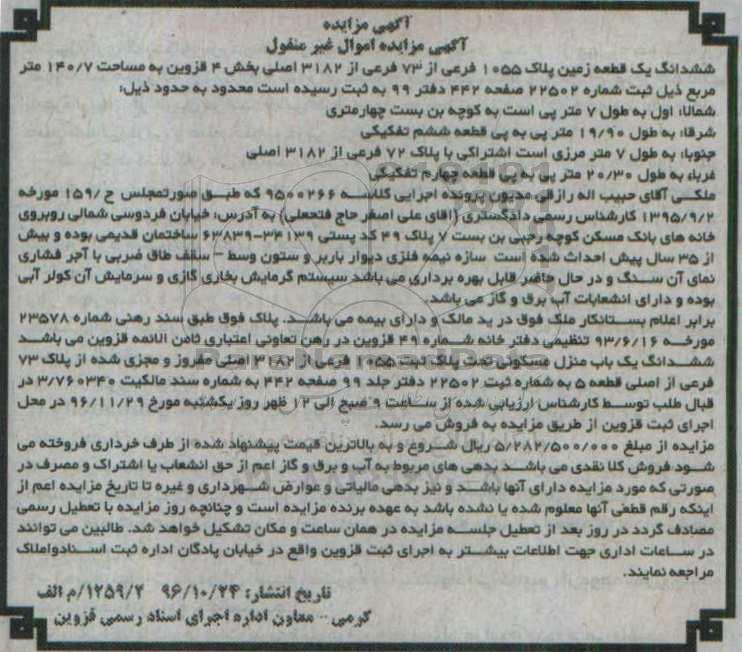 آگهی مزایده
آگهی مزایده اموال غیر منقول
ششدانگ یک قطعه زمین پلاک ۱۰۵۵ فرعی از ۷۳ فرعی از ۳۱۸۲ اصلی بخش ۴ قزوین به مساحت ۱۴۰/۷ متر
مربع ذیل ثبت شماره ۲۲۵۰۲ صفحه ۴۴۲ دفتر ۹۹ به ثبت رسیده است محدود به حدود ذیل:
شمالا: اول به طول ۷ متر پی است به کوچه بن بست چهارمتری
شرقا: به طول ۱۹/۹۰ متر پی به پی قطعه ششم تفکیکی
جنوبا: به طول ۷ متر مرزی است اشتراکی با پلاک ۷۲ فرعی از ۳۱۸۲ اصلی
غربا: به طول ۲۰/۳۰ متر پی به پی قطعه چهارم تفکیکی
ملکی آقای حبیب اله رازقی مدیون پرونده اجرایی کلاسه ۹۵۰۰۲۶۶ که طبق صورتمجلس ح/۱۵۹ مورخه
۱۳۹۵/۹/۲ کارشناس رسمی دادگستری (اقای علی اصغر حاج فتحعلی) به آدرس: خیابان فردوسی شمالی روبروی
خانه های بانک مسکن کوچه رجبی بن بست ۷ پلاک ۴۹ کد پستی ۳۴۱۳۹-۶۳۸۳۹ ساختمان قدیمی بوده و بیش
از ۳۵ سال پیش احداث شده است سازه نیمه فلزی دیوار باربر و ستون وسط – سقف طاق ضربی با آجر فشاری
نمای آن سنگ و در حال حاضر قابل بهره برداری می باشد سیستم گرمایش بخاری گازی و سرمایش آن کولر آبی
بوده و دارای انشعابات آب برق و گاز می باشد.
برابر اعلام بستانکار ملک فوق در ید مالک و دارای بیمه می باشد. پلاک فوق طبق سند رهنی شماره ۲۳۵۷۸
مورخه ۹۳/۶/۱۶ تنظیمی دفتر خانه شماره ۴۹ قزوین در رهن تعاونی اعتباری ثامن الائمه قزوین می باشد
ششدانگ یک باب منزل مسکونی تحت پلاک ثبت ۱۰۵۵ فرعی از ۳۱۸۲ اصلی مفروز و مجزی شده از پلاک ۷۳
فرعی از اصلی قطعه ۵ به شماره ثبت ۲۲۵۰۲ دفتر جلد ۹۹ صفحه ۴۴۲ به شماره سند مالکیت ۳/۷۶۰۳۴۰ در
قبال طلب توسط کارشناس ارزیابی شده از ساعت ۹ صبح الی ۱۲ ظهر روز یکشنبه مورخ ۹۶/۱۱/۲۹ در محل
اجرای ثبت قزوین از طریق مزایده به فروش می رسد.
مزایده از مبلغ ۵/۲۸۲/۵۰۰/۰۰۰ ریال شروع و به بالاترین قیمت پیشنهاد شده از طرف خرداری فروخته می
شود فروش کلا نقدی می باشد بدهی های مربوط به آب و برق و گاز اعم از حق انشعاب یا اشتراک و مصرف در
صورتی که مورد مزایده دارای آنها باشد و نیز بدهی مالیاتی و عوارض شهرداری و غیره تا تاریخ مزایده اعم از
اینکه رقم قطعی آنها معلوم شده یا نشده باشد به عهده برنده مزایده است و چنانچه روز مزایده با تعطیل رسمی
مصادف گردد در روز بعد از تعطیل جلسه مزایده در همان ساعت و مکان تشکیل خواهد شد. طالبین می توانند
در ساعات اداری جهت اطلاعات بیشتر به اجرای ثبت قزوین واقع در خیابان پادگان اداره ثبت اسنادواملاک
مراجعه نمایند.
تاریخ انتشار: ۹۶/۱۰/۲۴ ۱۲۵۹/۲/م الف
کرمی – معاون اداره اجرای اسناد رسمی قزوین